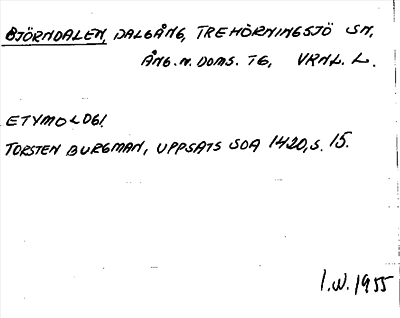 BJÖRNDALEN, DALGÅNG, TREHÖRNINGSJÖ SN,
ÅNG. N. DOMS. TG, VRNL. L.
ETYMOLOGI
TORSTEN BURGMAN, UPPSATS SOA 1420, S. 15.
I.W. 1955